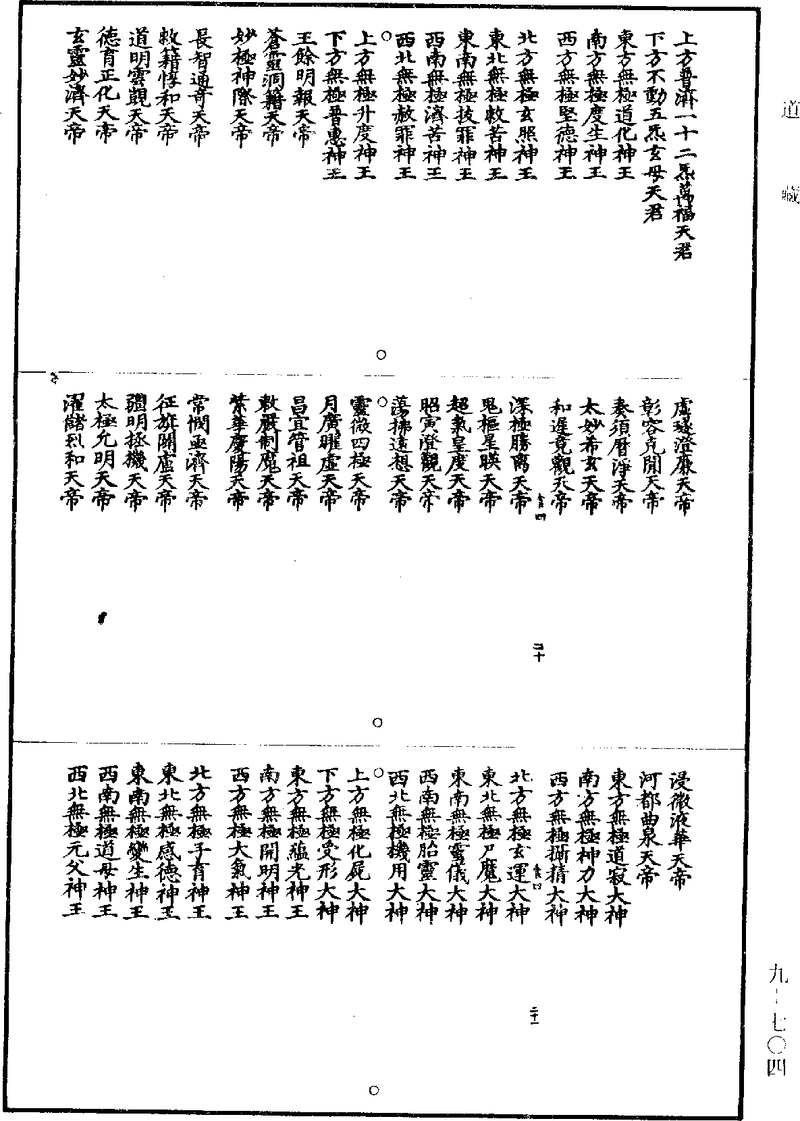 道藏
上方普濟一十二炁萬福天君
下方不動五炁玄母天君
東方無極道化神王
南方無極度生神王
西方無極堅德神王
北方無極玄照神王
東北無極救苦神王
東南無極拔罪神王
西南無極濟苦神王
西北無極赦罪神王
上方無極升度神王
下方無極普惠神王
王餘明報天帝
蒼靈洞籍天帝
妙極神際天帝
長智通奇天帝
敕籍惇和天帝
道明雲觀天帝
德育正化天帝
玄靈妙濟天帝
虛璲澄廕天帝
彰容克開天帝
奏須曆淨天帝
太妙希玄天帝
和遲竟觀天帝
二十
深極勝离天帝
鬼樞星暎天帝
超氣皇度天帝
昭寅澄觀天帝
蕩拂遠想天帝
靈微四極天帝
月廣曜虛天帝
昌宜管祖天帝
敕嚴制魔天帝
紫華慶陽天帝
常憫亟濟天帝
征旗關盧天帝
彊明拯機天帝
太極允明天帝
濯儲烈和天帝
浸微液華天帝
河都曲泉天帝
東方無極道寂大神
南方無極神力大神
西方無極摘精大神
二十一
北方無極玄運大神
東北無極尸魔大神
東南無極靈儀大神
西南無極胎靈大神
西北無極機用大神
上方無極化屍大神
下方無極受形大神
東方無極蘊光神王
南方無極開明神王
西方無極大氣神王
北方無極子育神王
東北無極感德神王
東南無極變生神王
西南無極道母神王
西北無極元父神王
九-七〇四